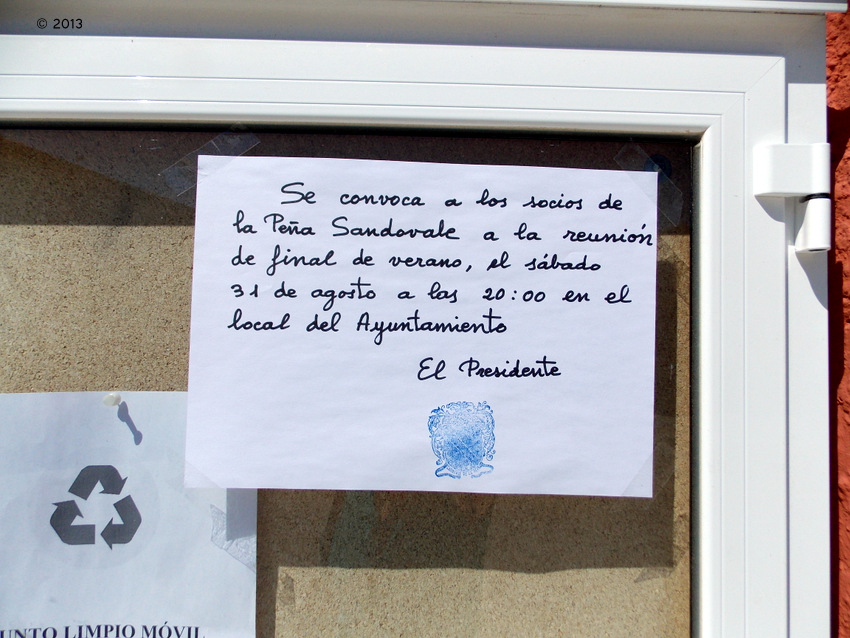 © 2013
Se convoca a los socios de
la Peña Sandovale a la reunión
de final de verano, el sábado
31 de agosto a las 20:00 en el
local del Ayuntamiento
El Presidente
UNTO LIMPIO MÓVIL